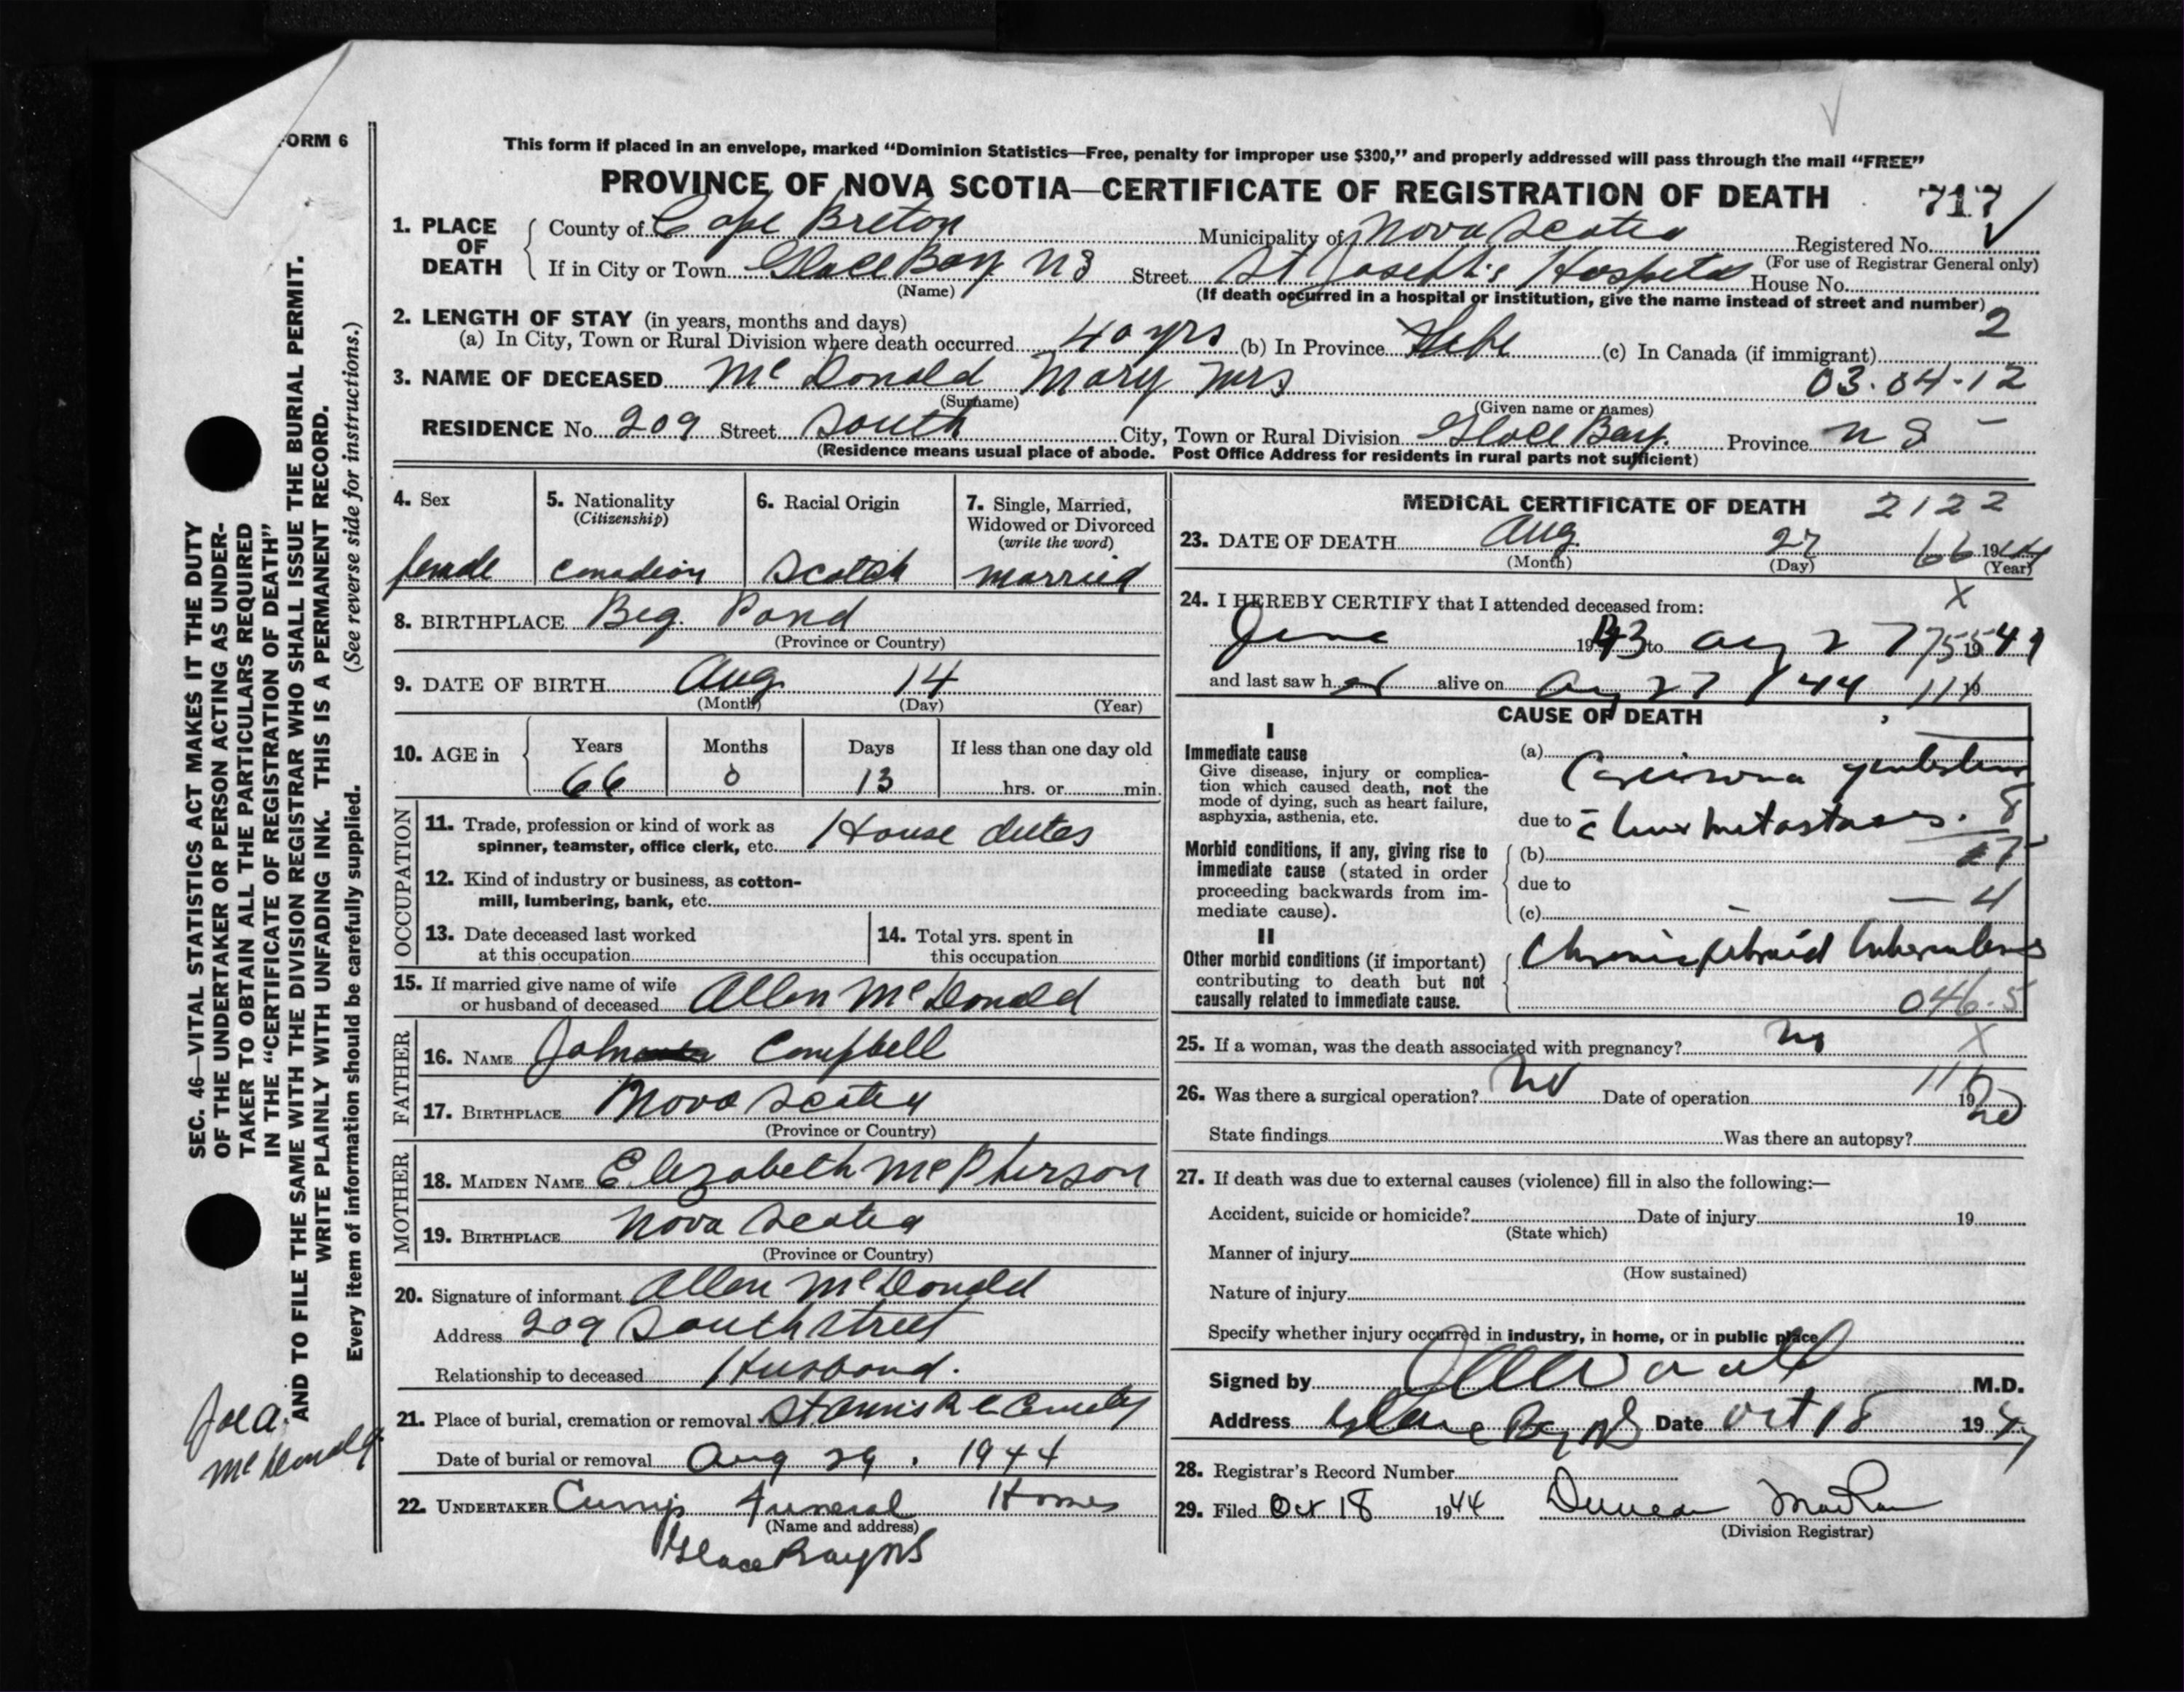 FORM 6
This form if placed in an envelope, marked "Dominion Statistics—Free, penalty for improper use $300," and properly addressed will pass through the mail "FREE"
PROVINCE OF NOVA SCOTIA—CERTIFICATE OF REGISTRATION OF DEATH 717
1. PLACE OF DEATH
County of Cape Breton Municipality of Nova Scotia Registered No.
(For use of Registrar General only)
If in City or Town Glace Bay NS Street St Joseph's Hospital House No.
(Name)
(If death occurred in a hospital or institution, give the name instead of street and number)
2
2. LENGTH OF STAY (in years, months and days)
(a) In City, Town or Rural Division where death occurred 40 yrs (b) In Province Life (c) In Canada (if immigrant)
3. NAME OF DECEASED McDonald Mary Mrs 03.04-12
(Surname) (Given name or names)
RESIDENCE No. 209 Street South City, Town or Rural Division Glace Bay. Province N S
(Residence means usual place of abode. Post Office Address for residents in rural parts not sufficient)
4. Sex
female
5. Nationality
(Citizenship)
Canadian
6. Racial Origin
Scotch
7. Single, Married,
Widowed or Divorced
(write the word)
married
8. BIRTHPLACE Big. Pond
(Province or Country)
9. DATE OF BIRTH Aug 14
(Month) (Day) (Year)
10. AGE in
Years Months Days If less than one day old
66 0 13 hrs. or min.
OCCUPATION
11. Trade, profession or kind of work as
spinner, teamster, office clerk, etc. House duties
12. Kind of industry or business, as cotton-
mill, lumbering, bank, etc.
13. Date deceased last worked
at this occupation
14. Total yrs. spent in
this occupation
15. If married give name of wife
or husband of deceased Allen McDonald
FATHER
16. NAME John Campbell
17. BIRTHPLACE Nova Scotia
(Province or Country)
MOTHER
18. MAIDEN NAME Elizabeth McPherson
19. BIRTHPLACE Nova Scotia
(Province or Country)
20. Signature of informant Allen McDonald
Address 209 South Street
Relationship to deceased Husband.
21. Place of burial, cremation or removal St Annis R C
Date of burial or removal Aug 29. 1944
22. UNDERTAKER Currys Funeral Homes
(Name and address)
Glace Bay NS
MEDICAL CERTIFICATE OF DEATH 2122
23. DATE OF DEATH Aug 27 66 1944
(Month) (Day) (Year)
24. I HEREBY CERTIFY that I attended deceased from: X
June 1943 to Aug 27 1944
and last saw her alive on Aug 27 / 44 19
CAUSE OF DEATH
I
Immediate cause
Give disease, injury or complica-
tion which caused death, not the
mode of dying, such as heart failure,
asphyxia, asthenia, etc.
(a) Carcinoma
due to c̄ liver metastases. 8
Morbid conditions, if any, giving rise to
immediate cause (stated in order
proceeding backwards from im-
mediate cause).
(b)
due to
(c) — — 4
II
Other morbid conditions (if important)
contributing to death but not
causally related to immediate cause.
Chronic fibroid tuberculosis
046.5
25. If a woman, was the death associated with pregnancy? no X
26. Was there a surgical operation? No Date of operation 19
State findings Was there an autopsy? no
27. If death was due to external causes (violence) fill in also the following:—
Accident, suicide or homicide? Date of injury 19
(State which)
Manner of injury
(How sustained)
Nature of injury
Specify whether injury occurred in industry, in home, or in public place
Signed by M.D.
Address Glace Bay NS Date Oct 18 19
28. Registrar's Record Number
29. Filed Oct 18 1944 Duncan
(Division Registrar)
SEC. 46—VITAL STATISTICS ACT MAKES IT THE DUTY
OF THE UNDERTAKER OR PERSON ACTING AS UNDER-
TAKER TO OBTAIN ALL THE PARTICULARS REQUIRED
IN THE "CERTIFICATE OF REGISTRATION OF DEATH"
AND TO FILE THE SAME WITH THE DIVISION REGISTRAR WHO SHALL ISSUE THE BURIAL PERMIT.
WRITE PLAINLY WITH UNFADING INK. THIS IS A PERMANENT RECORD.
Every item of information should be carefully supplied. (See reverse side for instructions.)
Joe A.
McDonald